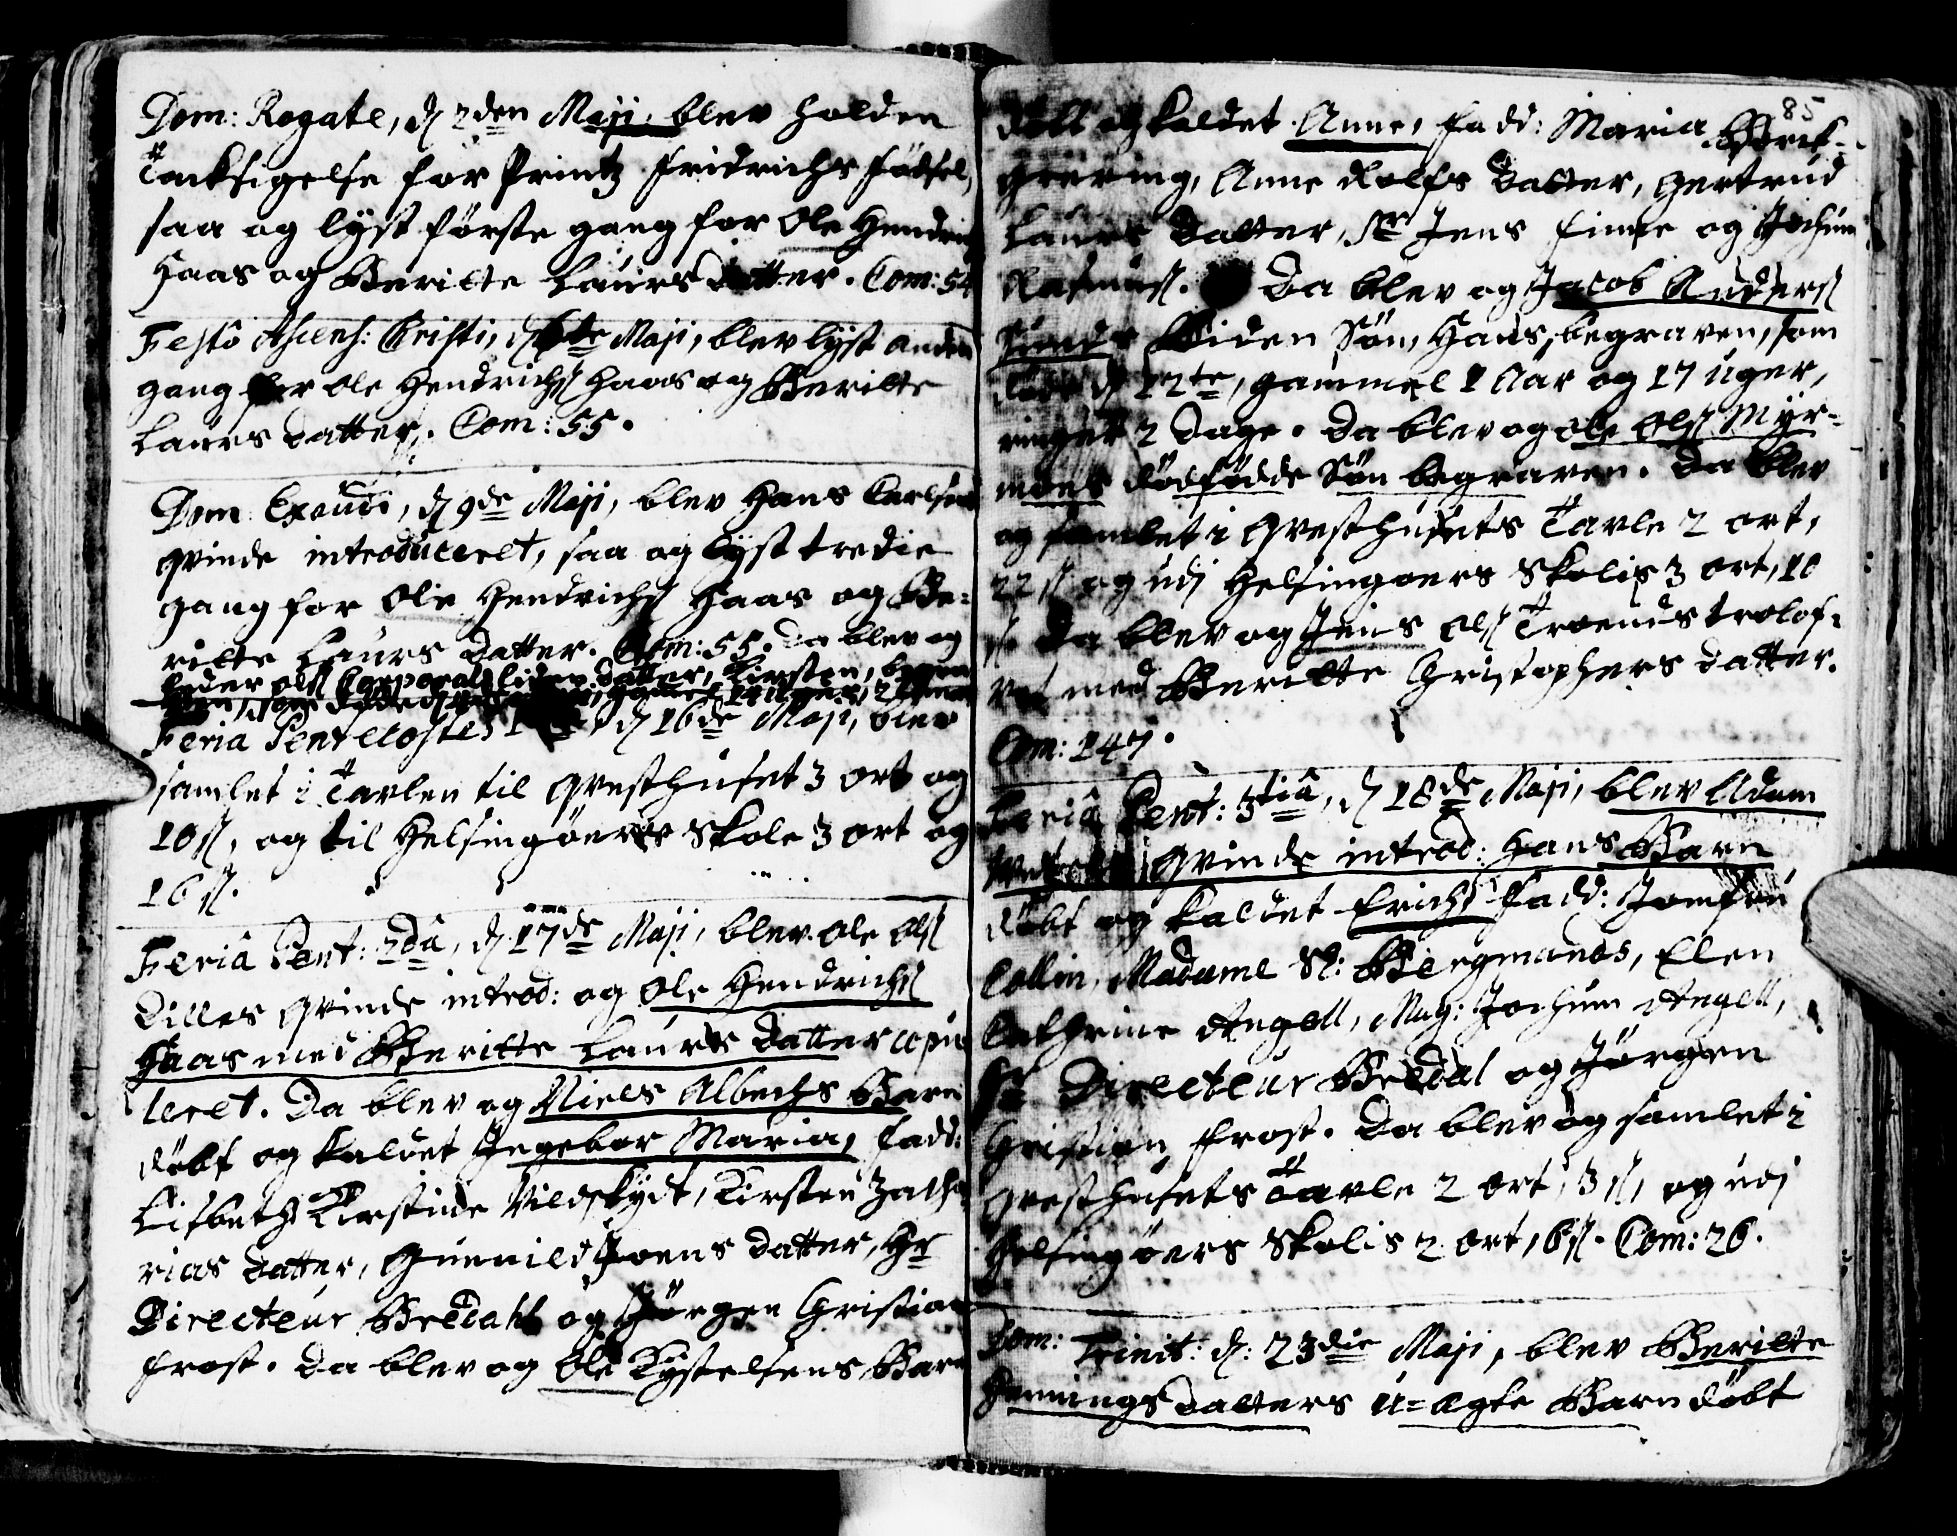 Dom: Rogate, d 2den Maji, blev holden
Tacksigelse for Printz Fridrichs fødsel,
saa og lyst første gang for Ole Hendrich
Haas og Beritte Laurs datter. Com: 54
Festô Ascens: Christi, d 6te Maji, blev lyst anden
gang for Ole Hendrichs Haas og Beritte
Laurs datter. Com: 55.
Dom: Exaudi, d 9de Maji, blev Hans Carlsens
qvinde introduceret, saa og lyst tredie
gang for Ole Hendrichs Haas og Be-
ritte Laurs Datter. Com: 55. Da blev og
Peder Ols Corporals liden datter, Kirsten, begra
ven, som døde d
Feria Pentecostes 1 d 16de Maji, blev
samlet i Tavlen til Qvesthuset 3 ort og
10 s, og til Helsingøers Skole 3 ort og
16 s.
Feriâ Pent: 2dâ, d 17de Maji, blev Ole Ols
Dilles qvinde introd: og Ole Hendrichs
Haas med Beritte Laurs Datter copu
leret. Da blev og Niels Albechs Barn
døbt og kaldet Ingebor Maria, fadd:
Lisbeth Kirstine Vildskydt, Kirsten Zacha
rias datter, Gunnild Joens datter, Hr
Directeur Bredahl og Jørgen Christian
Frost. Da blev og Ole Kystelsens Barn
85
døbt og kaldet Anne, fadd: Maria
Anne Rolfs Datter, Gertrud
Laurs Datter, Sr Jens Finne og Jochum
Rasmuss. Da blev og Jacob Anders
Sunds liden Søn, Hans, begraven, som
døde d 12te, gammel 1 Aar og 17 uger,
ringet 2 dage. Da blev og Ole Ols Myr-
moes dødfødde Søn begraven. Da blev
og samlet i Qvesthusets Tavle 2 ort,
22 s og udj Helsingøers Skolis 3 ort, 10
s. Da blev og Jens Ols Troends trolof-
vet med Beritte Christophers datter.
Com: 147.
Feriâ Pent: 3tiâ, d 18de Maji, blev Adam
qvinde introd: Hans Barn
døbt og kaldet Erich, Fadd: Jomfru
Collin, Madame Sl: Bergmands, Elen
Cathrine Angell, Mag: Jochum Angell,
Hr Directeur Bredal og Jørgen
Christian Frost. Da blev og samlet i
Qvesthusets Tavle 2 ort, 3 s, og udj
Helsingøers Skolis 2 ort, 6 s. Com: 26.
Dom: Trinit: d: 23die Maji, blev Beritte
Hennings datters u-ægte Barn døbt